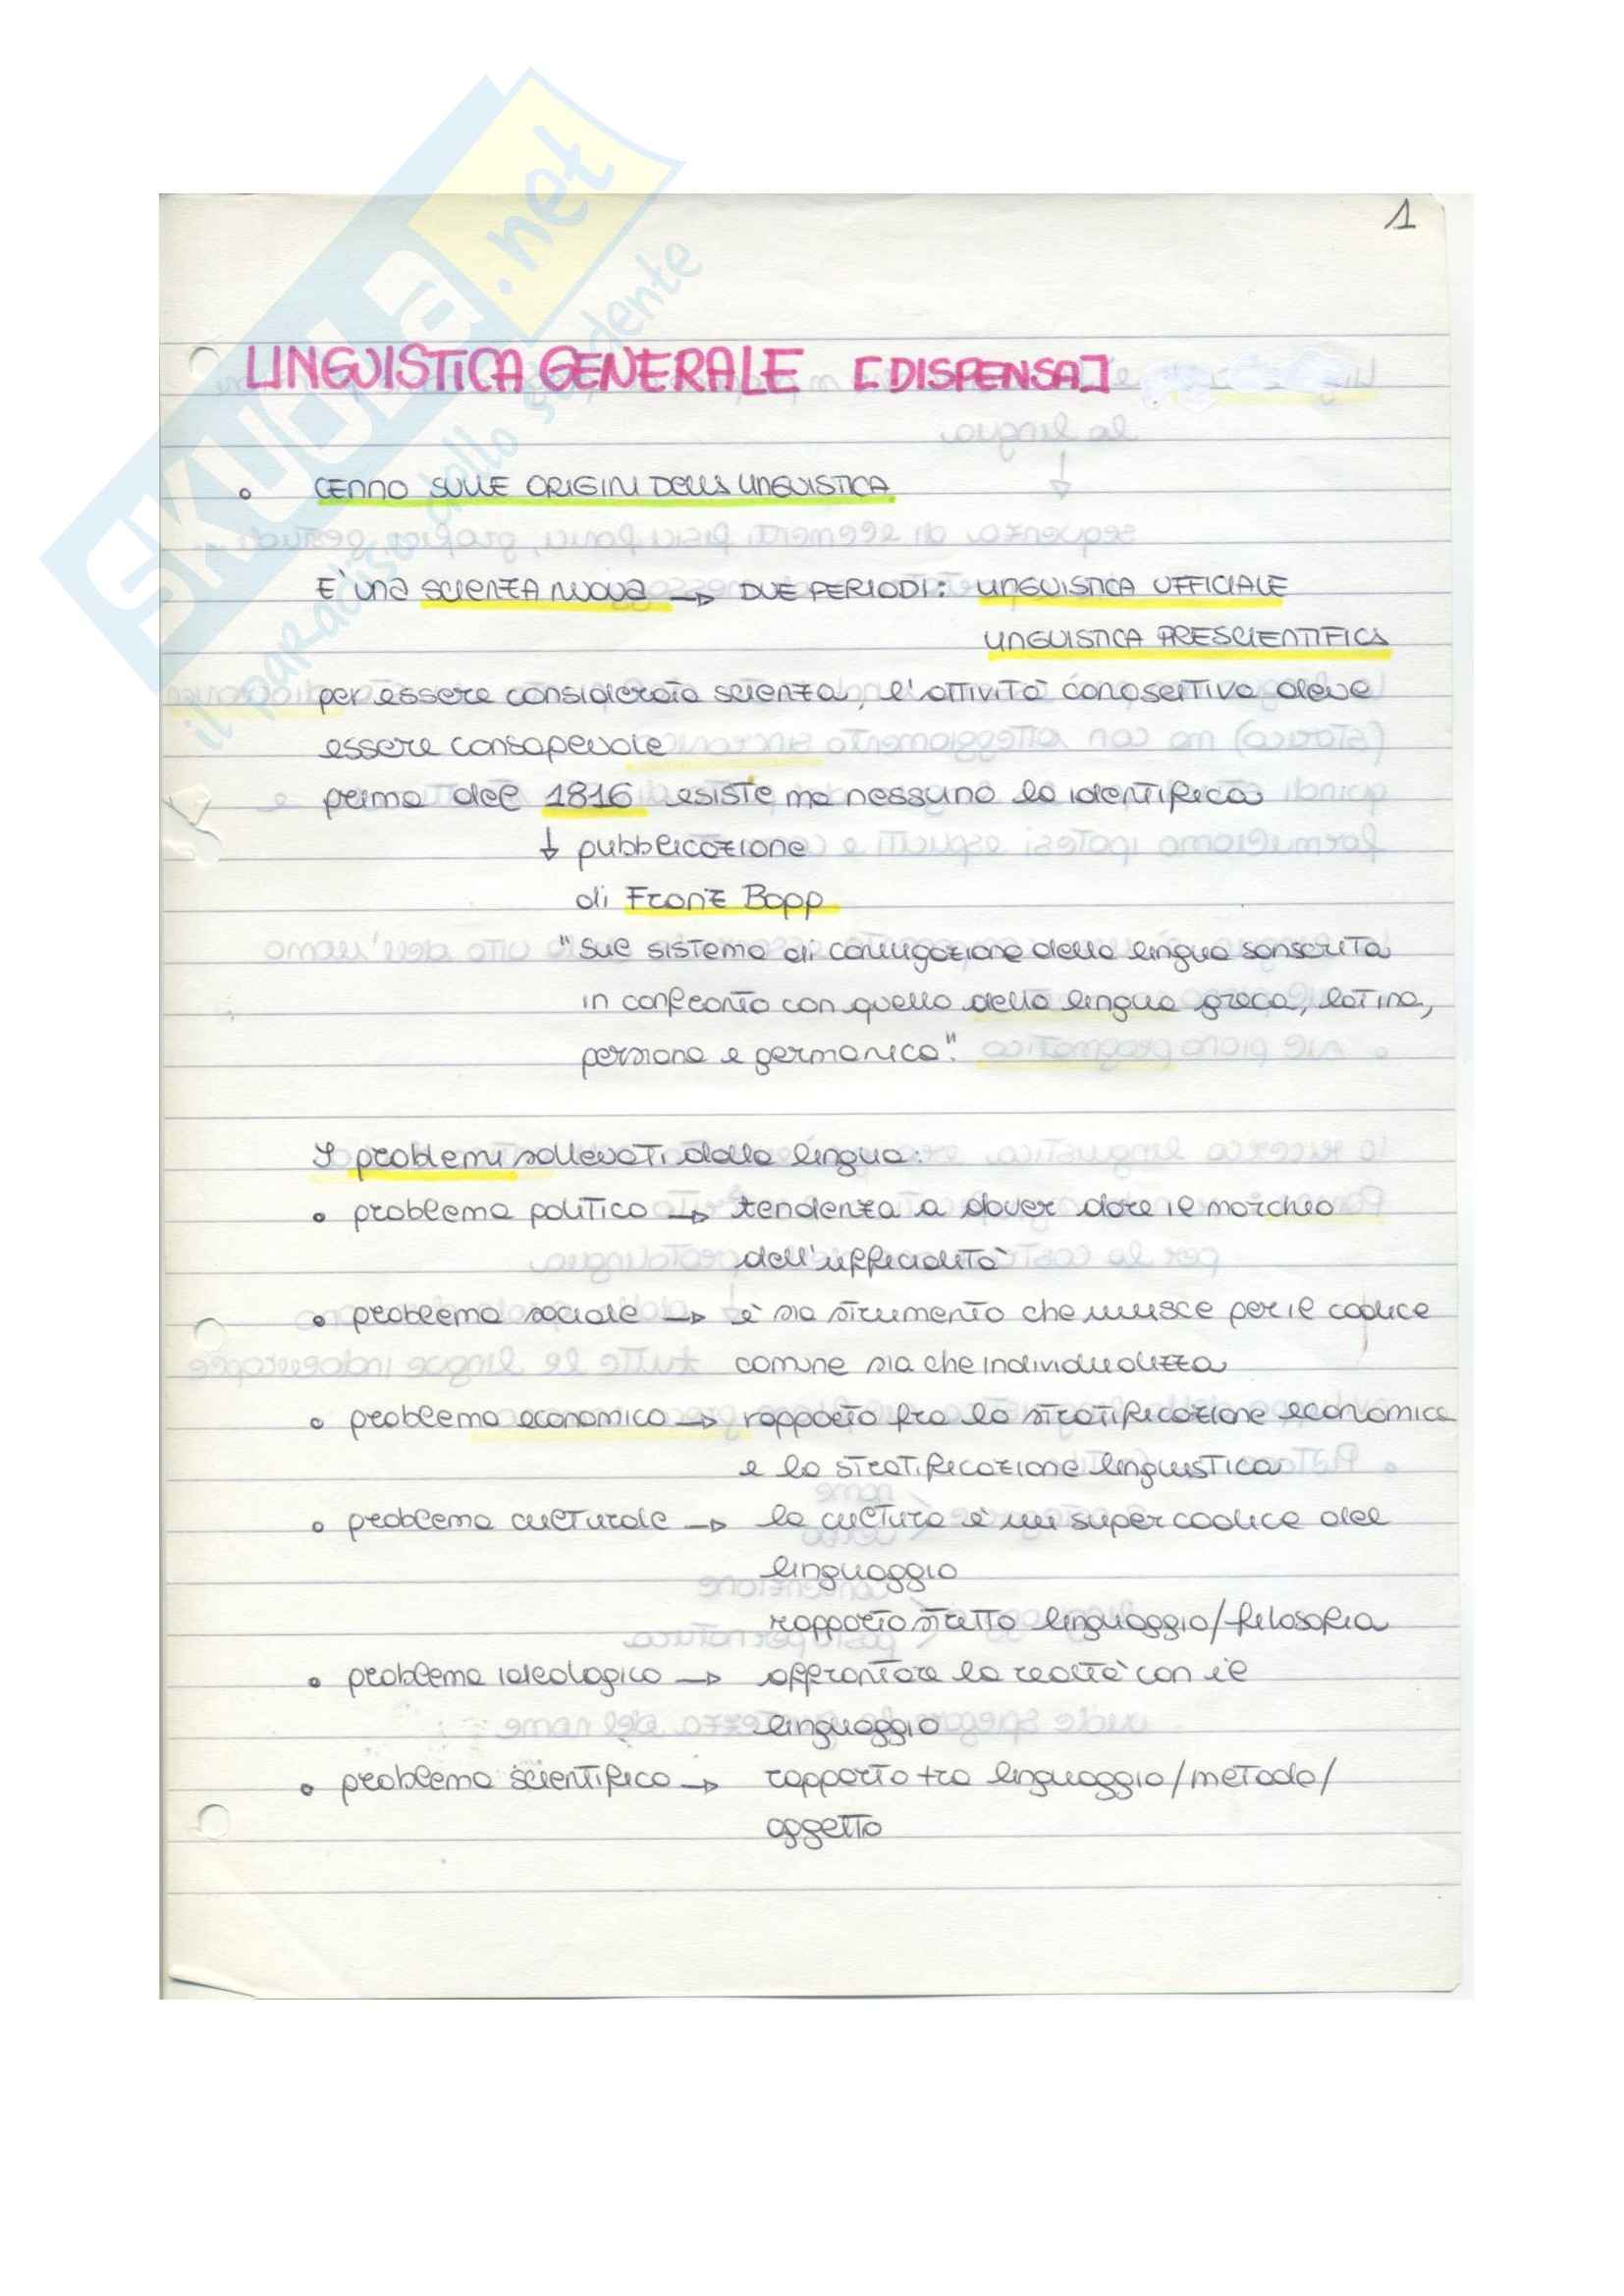 1
SKUOLA.net
il paradiso dello studente
LINGUISTICA GENERALE [DISPENSA]
CENNO SULLE ORIGINI DELLA LINGUISTICA
E' una SCIENZA NUOVA → DUE PERIODI: LINGUISTICA UFFICIALE
LINGUISTICA PRESCIENTIFICA
per essere considerata scienza, l'attività conoscitiva deve
essere consapevole
prima del 1816 esiste ma nessuno la identifica
↓ pubblicazione
di Franz Bopp
"Sul sistema di coniugazione della lingua sanscrita
in confronto con quello della lingua greca, latina,
persiana e germanica".
I problemi sollevati dalla lingua:
• problema politico → tendenza a dover dare il marchio
dell'ufficialità
• problema sociale → è sia strumento che unisce per il codice
comune sia che individualizza
• problema economico → rapporto fra la stratificazione economica
e la stratificazione linguistica
• problema culturale → la cultura è un supercodice del
linguaggio
rapporto stretto linguaggio/filosofia
• problema ideologico → affrontare la realtà con il
linguaggio
• problema scientifico → rapporto tra linguaggio/metodo/
oggetto